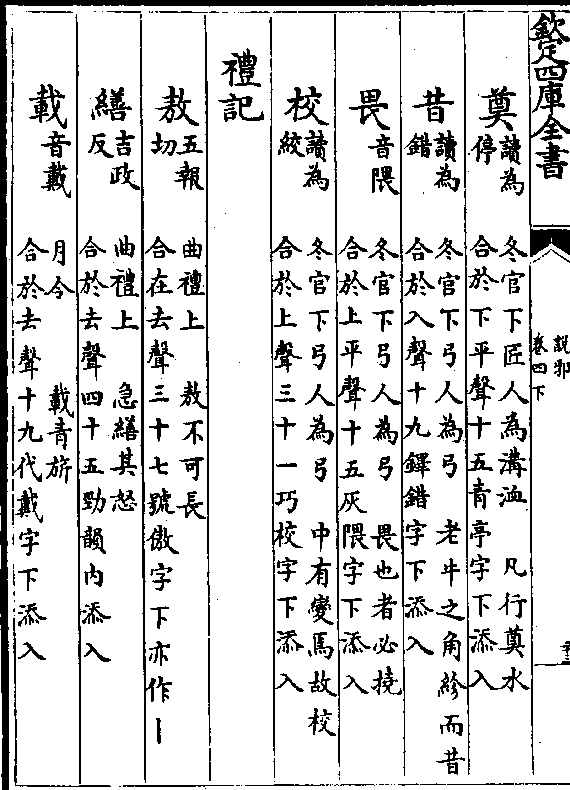 欽定四庫全書
說郛
卷四下
奠
讀為
停
冬官下匠人為溝洫　凡行奠水
合於下平聲十五青亭字下添入
昔
讀為
錯
冬官下弓人為弓　老牛之角紾而昔
合於入聲十九鐸錯字下添入
畏
音隈
冬官下弓人為弓　畏也者必撓
合於上平聲十五灰隈字下添入
校
讀為
絞
冬官下弓人為弓　中有變焉故校
合於上聲三十一巧校字下添入
禮記
敖
五報
切
曲禮上　敖不可長
合在去聲三十七號傲字下亦作丨
繕
吉政
反
曲禮上　急繕其怒
合於去聲四十五勁韻内添入
載
音戴
月令　載青旂
合於去聲十九代戴字下添入